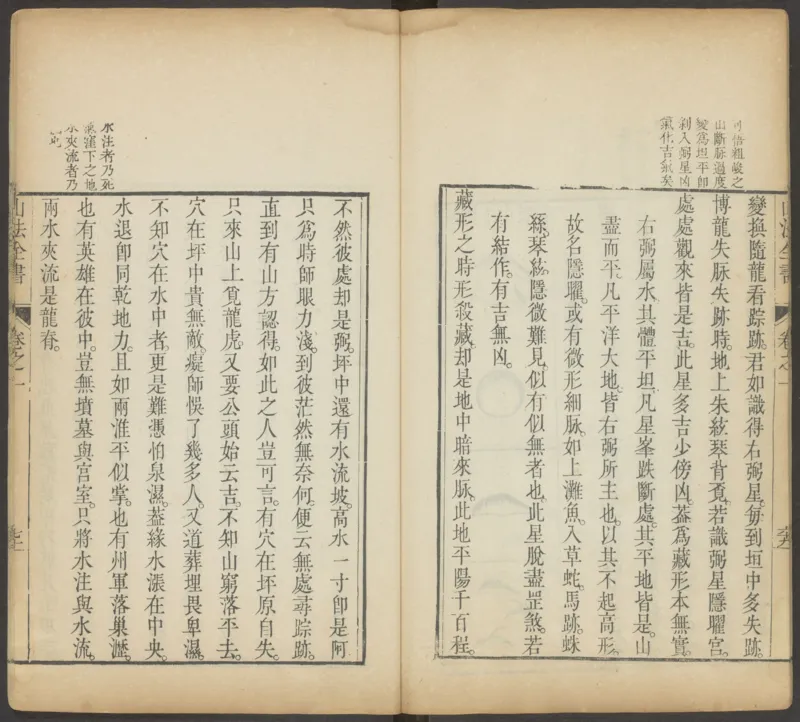 山法全書 卷之一
可悟粗峻之
山斷脉過度
變爲坦平卽
剥入弼星凶
氣化吉氣矣
變換隨龍看踪跡。君如識得右弼星。每到垣中多失跡。
博龍失脉失跡時。地上朱絃琴背覔。若識弼星隱曜宮。
處處觀來皆是吉。此星多吉少傍凶。葢爲藏形本無實。
右弼屬水其體平坦。凡星峯跌斷處。其平地皆是。山
盡而平。凡平洋大地。皆右弼所主也。以其不起高形。
故名隱曜。或有微形細脉。如上灘魚。入草蛇。馬跡。蛛
絲。琴絃。隱微難見。似有似無者也。此星脫盡罡煞。若
有結作。有吉無凶。
藏形之時形殺藏。却是地中暗來脉。此地平陽千百程。
不然彼處却是弼。坪中還有水流坡。高水一寸卽是阿
只爲時師眼力淺。到彼茫然無奈何。便云無處尋踪跡。
直到有山方認得。如此之人豈可言。有穴在坪原自失。
只來山上覓龍虎。又要公頭始云吉。不知山窮落平去。
穴在坪中貴無敵。癡師悞了幾多人。又道葬埋畏卑濕。
不知穴在水中者。更是難憑怕泉濕。葢緣水漲在中央。
水退卽同乾地力。且如兩淮平似掌。也有州軍落巢瀝。
也有英雄在彼中。豈無墳墓與宮室。只將水注與水流。
兩水夾流是龍脊。
水注者乃死
氣窪下之地
水夾流者乃
山法全書 卷之一